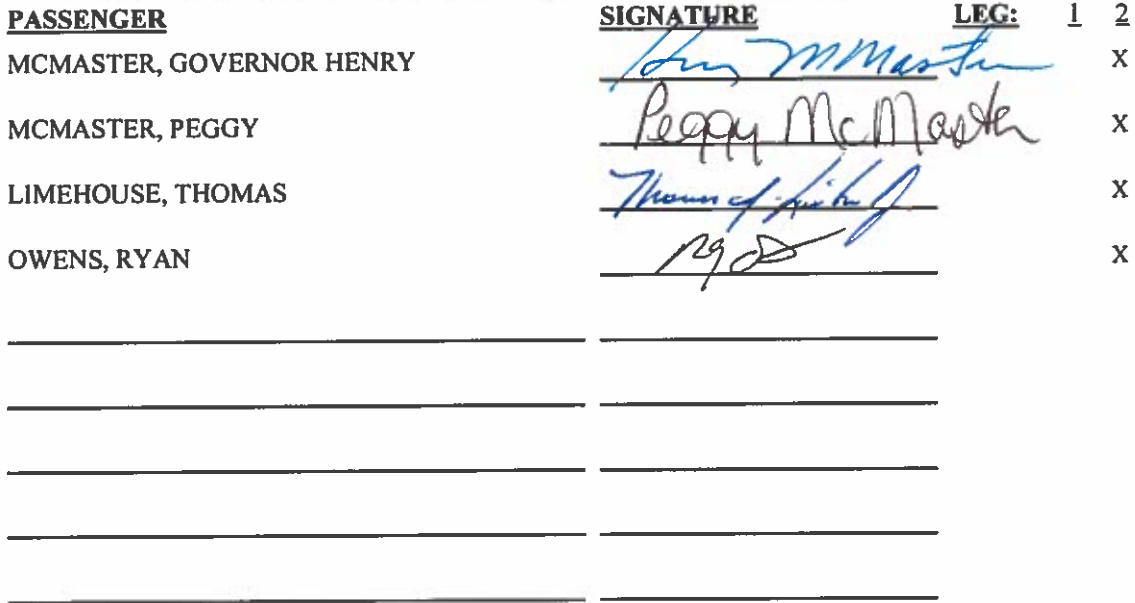 PASSENGER SIGNATURE LEG: 1 2
MCMASTER, GOVERNOR HENRY Henry McMaster X
MCMASTER, PEGGY Peggy McMaster X
LIMEHOUSE, THOMAS X
OWENS, RYAN X